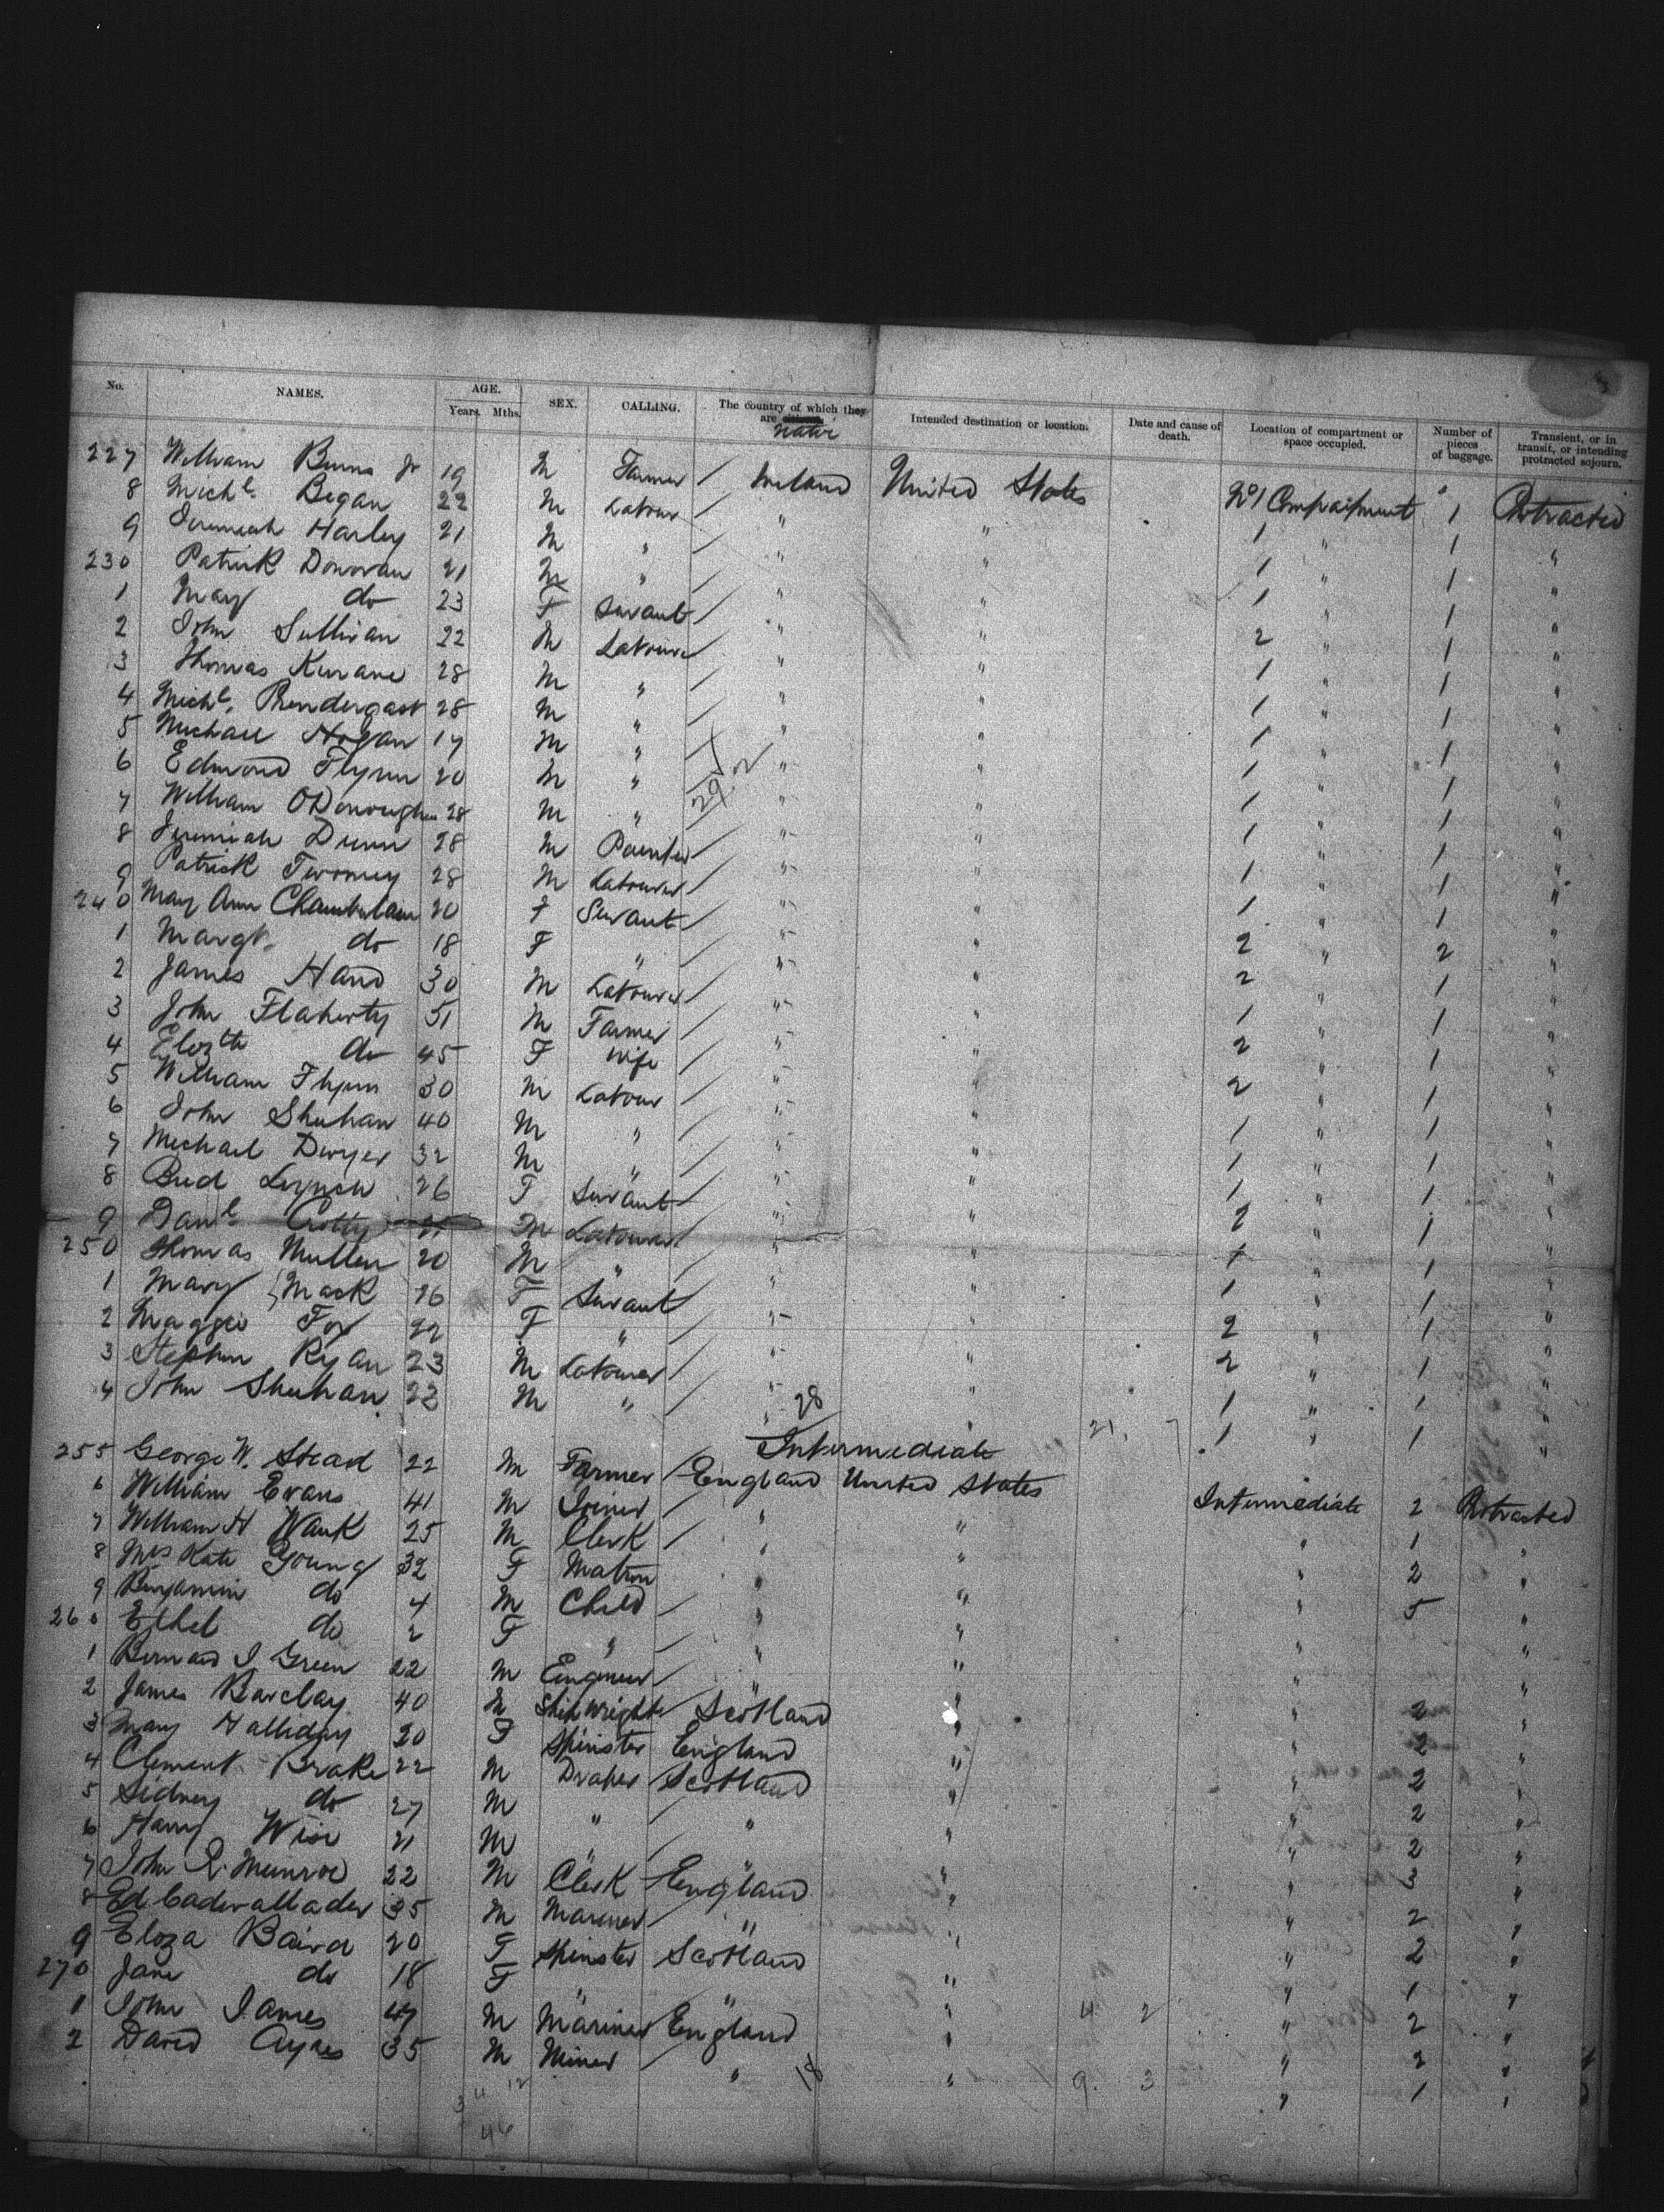 No. NAMES. AGE. Years. Mths. SEX. CALLING. The country of which they are citizens. nativ Intended destination or location. Date and cause of death. Location of compartment or space occupied. Number of pieces of baggage. Transient, or in transit, or intending protracted sojourn.
227 William Burns Jr 19 M Farmer / Ireland United States No 1 Compartment 1 Protracted
8 Michl. Began 22 M Labour / " " 1 " 1 "
9 Jeremiah Harley 21 M " / " " 1 " 1 "
230 Patrick Donovan 21 M " / " " 1 " 1 "
1 Mary do 23 F Servant / " " 2 " 1 "
2 John Sullivan 22 M Labourer / " " 1 " 1 "
3 Thomas Kirrane 28 M " / " " 1 " 1 "
4 Michl. Prendergast 28 M " / " " 1 " 1 "
5 Michael Hogan 17 M " / " " 1 " 1 "
6 Edmond Flynn 20 M " " " 1 " 1 "
7 William ODonoughue 28 M " 29 " " 1 " 1 "
8 Jeremiah Dunn 28 M Painter / " " 1 " 1 "
9 Patrick Twomey 28 M Labourer / " " 1 " 1 "
240 Mary Ann Chamberlain 20 F Servant / " " 2 " 2 "
1 Margt. do 18 F " / " " 2 " 1 "
2 James Hand 30 M Labourer / " " 1 " 1 "
3 John Flaherty 51 M Farmer / " " 2 " 1 "
4 Elozth do 45 F Wife / " " 2 " 1 "
5 William Flynn 30 M Labour / " " 1 " 1 "
6 John Shuhan 40 M " / " " 1 " 1 "
7 Michael Dwyer 32 M " / " " 1 " 1 "
8 Brid Lynch 26 F Servant / " " 2 " 1 "
9 Danl. Crotty 21 M Labourer / " " 1 " 1 "
250 Thomas Mullen 20 M " / " " 1 " 1 "
1 Mary Mack 26 F Servant / " " 2 " 1 "
2 Maggie Fox 22 F " / " " 2 " 1 "
3 Stephen Ryan 23 M Labourer / " " 1 " 1 "
4 John Shuhan 22 M " / " 28 " 21. 7 1 " 1 "
Intermediate
255 George W. Stead 22 M Farmer / England United States Intermediate 2 Protracted
6 William Evans 41 M Joiner / " " " 1 "
7 William H Wauk 25 M Clerk / " " " 2 "
8 Mrs Kate Young 32 F Matron " " " 5 "
9 Benjamin do 4 M Child / " " " "
260 Ethel do 2 F " / " " " "
1 Bernard I Green 22 M Engineer / " " " 2 "
2 James Barclay 40 M Shipwright / Scotland " " 2 "
3 Mary Halliday 20 F Spinster England " " 2 "
4 Clement Brake 22 M Draper / Scotland " " 2 "
5 Sidney do 27 M " / " " " 2 "
6 Harry Wise 21 M " / " " " 3 "
7 John R. Munroe 22 M Clerk England " " 2 "
8 Ed Cadwallader 35 M Mariner / " " " 2 "
9 Eloza Baird 20 F Spinster Scotland " " 1 "
270 Jane do 18 F " " " 4 2 " 2 "
1 John James 47 M Mariner England " " 2 "
2 David Ayres 35 M Miner / " 18 " 9. 3 " 1 "
3 4 12
46